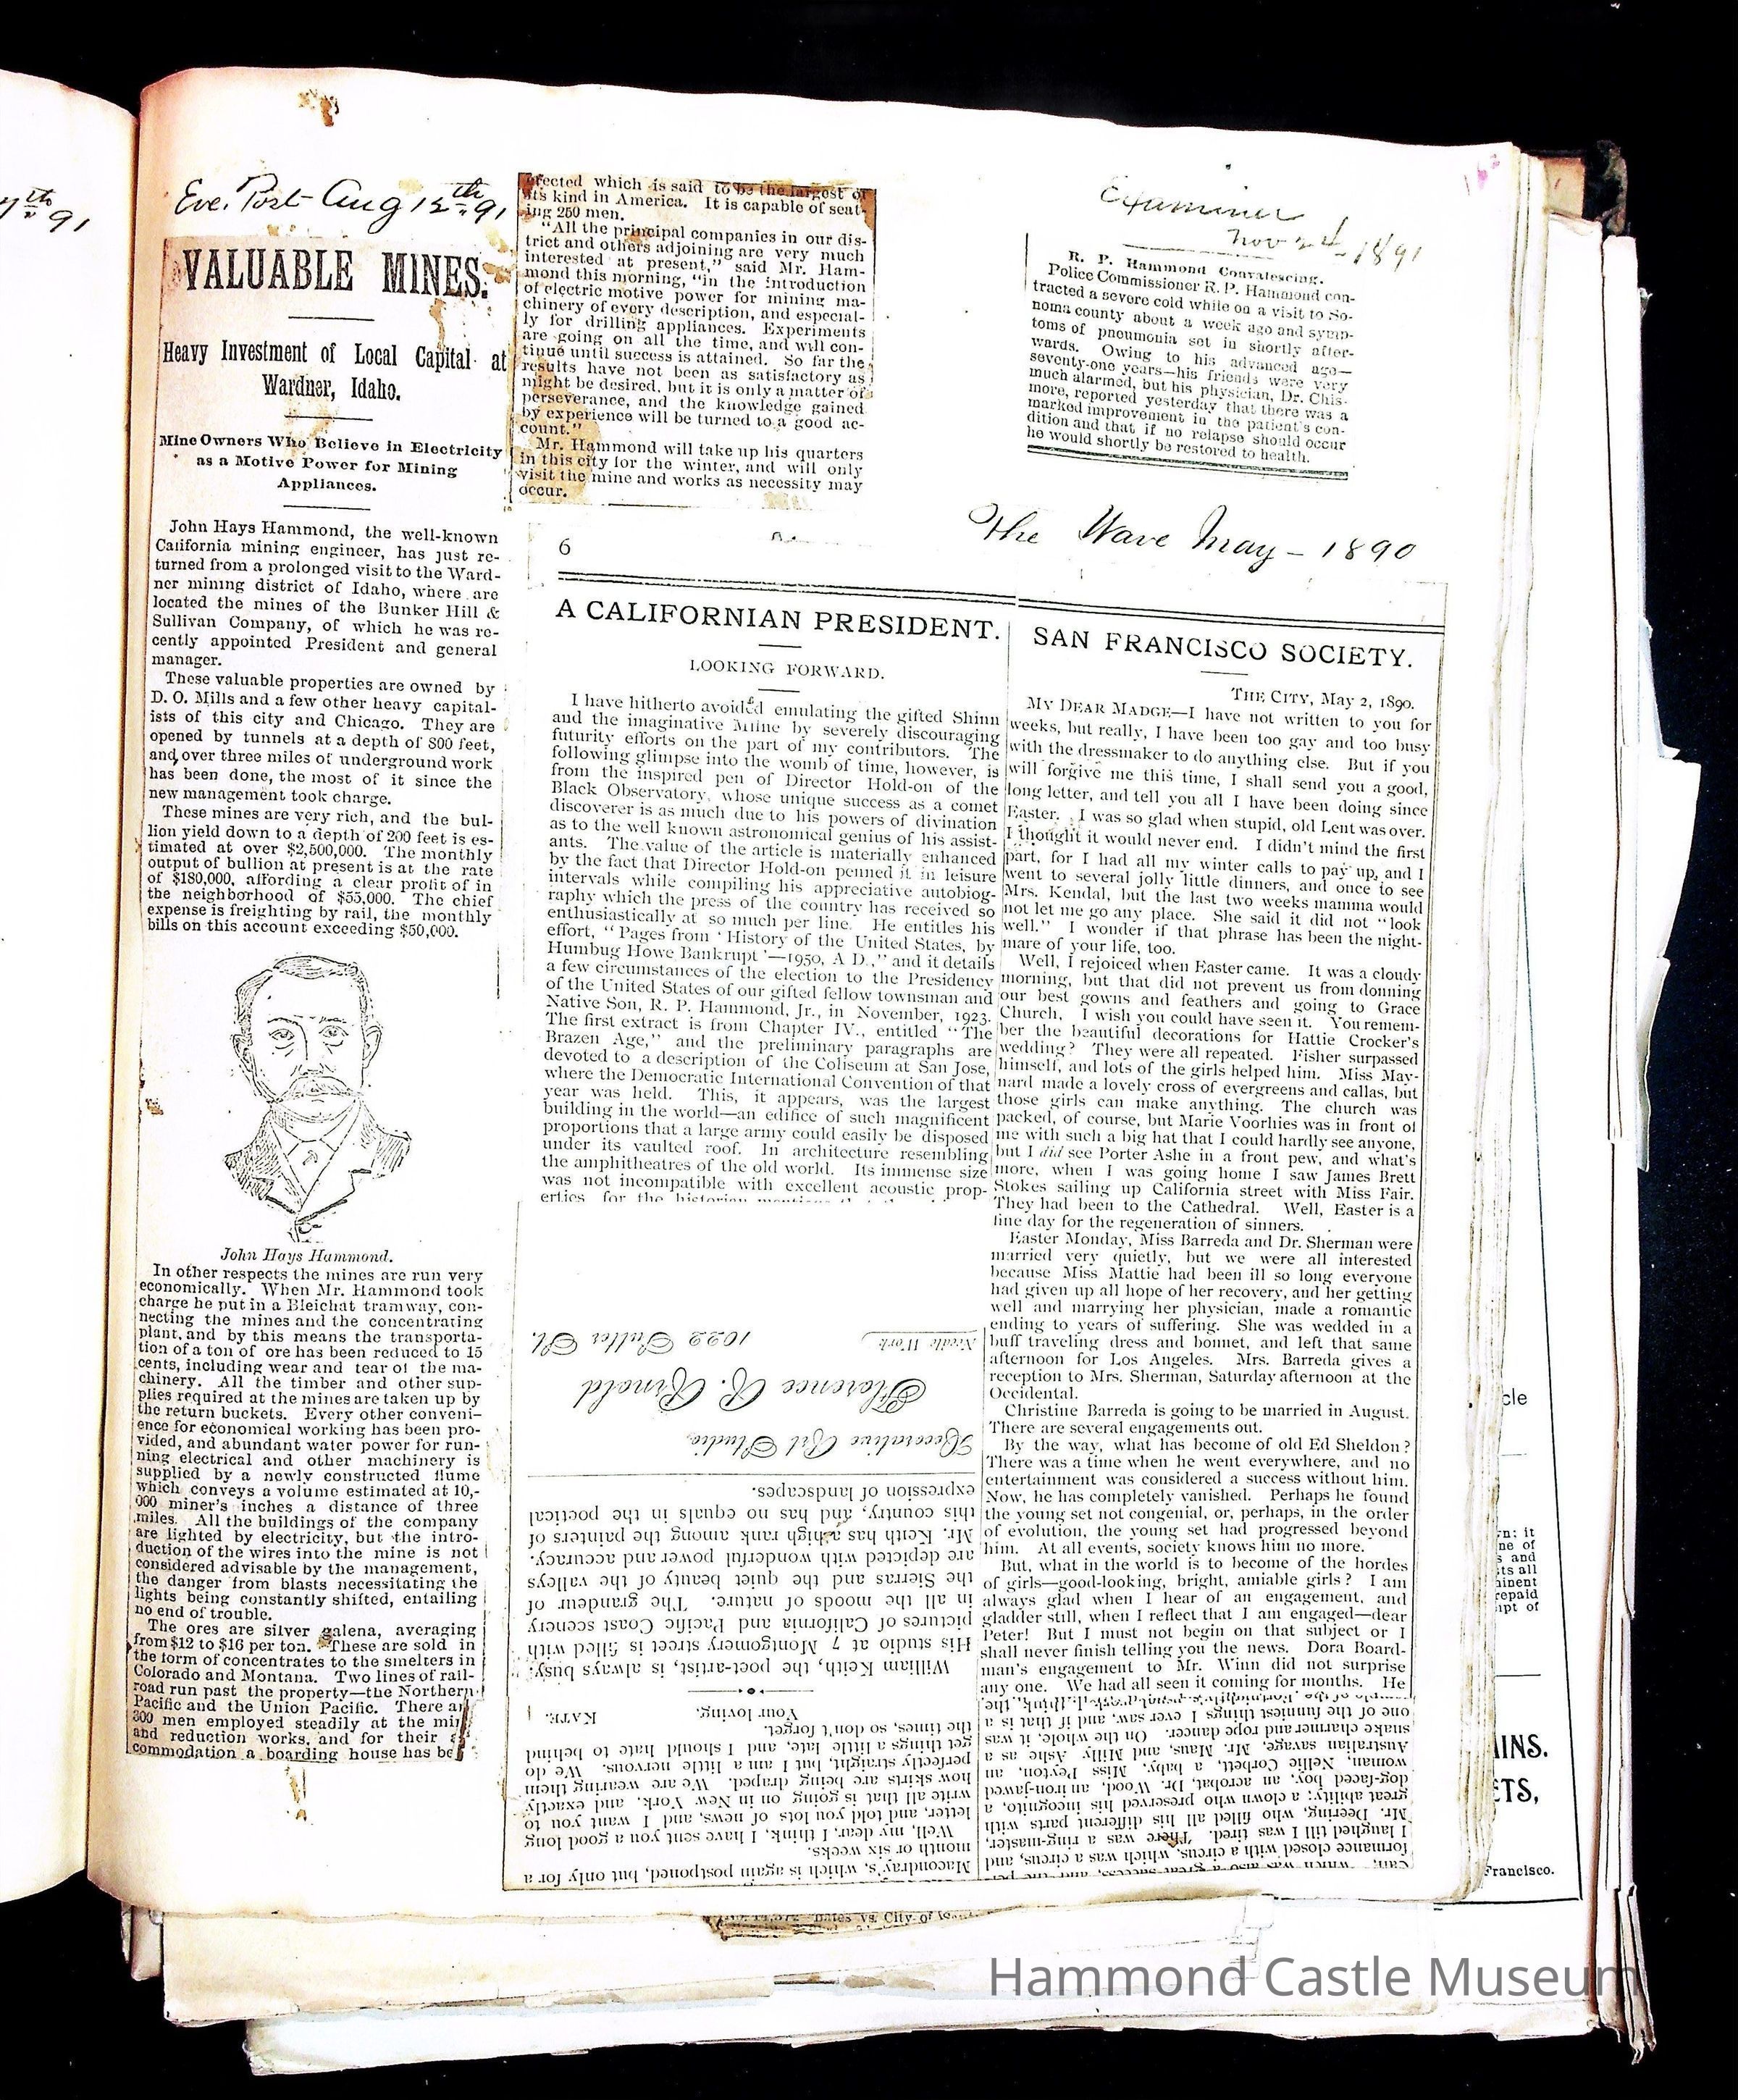 7th 91
Eve. Post Aug 12th 91
VALUABLE MINES.
Heavy Investment of Local Capital at
Wardner, Idaho.
Mine Owners Who Believe in Electricity
as a Motive Power for Mining
Appliances.
John Hays Hammond, the well-known
California mining engineer, has just re-
turned from a prolonged visit to the Ward-
ner mining district of Idaho, where are
located the mines of the Bunker Hill &
Sullivan Company, of which he was re-
cently appointed President and general
manager.
These valuable properties are owned by
D. O. Mills and a few other heavy capital-
ists of this city and Chicago. They are
opened by tunnels at a depth of 800 feet,
and over three miles of underground work
has been done, the most of it since the
new management took charge.
These mines are very rich, and the bul-
lion yield down to a depth of 200 feet is es-
timated at over $2,500,000. The monthly
output of bullion at present is at the rate
of $180,000, affording a clear profit of in
the neighborhood of $55,000. The chief
expense is freighting by rail, the monthly
bills on this account exceeding $50,000.
John Hays Hammond.
In other respects the mines are run very
economically. When Mr. Hammond took
charge he put in a Bleichat tramway, con-
necting the mines and the concentrating
plant, and by this means the transporta-
tion of a ton of ore has been reduced to 15
cents, including wear and tear of the ma-
chinery. All the timber and other sup-
plies required at the mines are taken up by
the return buckets. Every other conveni-
ence for economical working has been pro-
vided, and abundant water power for run-
ning electrical and other machinery is
supplied by a newly constructed flume
which conveys a volume estimated at 10,-
000 miner's inches a distance of three
miles. All the buildings of the company
are lighted by electricity, but the intro-
duction of the wires into the mine is not
considered advisable by the management,
the danger from blasts necessitating the
lights being constantly shifted, entailing
no end of trouble.
The ores are silver galena, averaging
from $12 to $16 per ton. These are sold in
the form of concentrates to the smelters in
Colorado and Montana. Two lines of rail-
road run past the property—the Northern
Pacific and the Union Pacific. There ar
300 men employed steadily at the mi
and reduction works, and for their
commodation a boarding house has be
erected which is said to be the largest of
its kind in America. It is capable of seat-
ing 250 men.
"All the principal companies in our dis-
trict and others adjoining are very much
interested at present," said Mr. Ham-
mond this morning, "in the introduction
of electric motive power for mining ma-
chinery of every description, and especial-
ly for drilling appliances. Experiments
are going on all the time, and will con-
tinue until success is attained. So far the
results have not been as satisfactory as
might be desired, but it is only a matter of
perseverance, and the knowledge gained
by experience will be turned to a good ac-
count."
Mr. Hammond will take up his quarters
in this city for the winter, and will only
visit the mine and works as necessity may
occur.
Examiner
Nov 24 - 1891
R. P. Hammond Convalescing.
Police Commissioner R. P. Hammond con-
tracted a severe cold while on a visit to So-
noma county about a week ago and symp-
toms of pneumonia set in shortly after-
wards. Owing to his advanced age—
seventy-one years—his friends were very
much alarmed, but his physician, Dr. Chis-
more, reported yesterday that there was a
marked improvement in the patient's con-
dition and that if no relapse should occur
he would shortly be restored to health.
The Wave May - 1890
6
A CALIFORNIAN PRESIDENT.
LOOKING FORWARD.
I have hitherto avoided emulating the gifted Shinn
and the imaginative Milne by severely discouraging
futurity efforts on the part of my contributors. The
following glimpse into the womb of time, however, is
from the inspired pen of Director Hold-on of the
Black Observatory, whose unique success as a comet
discoverer is as much due to his powers of divination
as to the well known astronomical genius of his assist-
ants. The value of the article is materially enhanced
by the fact that Director Hold-on penned it in leisure
intervals while compiling his appreciative autobiog-
raphy which the press of the country has received so
enthusiastically at so much per line. He entitles his
effort, "Pages from 'History of the United States, by
Humbug Howe Bankrupt'—1950, A D.," and it details
a few circumstances of the election to the Presidency
of the United States of our gifted fellow townsman and
Native Son, R. P. Hammond, Jr., in November, 1923.
The first extract is from Chapter IV., entitled "The
Brazen Age," and the preliminary paragraphs are
devoted to a description of the Coliseum at San Jose,
where the Democratic International Convention of that
year was held. This, it appears, was the largest
building in the world—an edifice of such magnificent
proportions that a large army could easily be disposed
under its vaulted roof. In architecture resembling
the amphitheatres of the old world. Its immense size
was not incompatible with excellent acoustic prop-
erties for the historian mentions that
SAN FRANCISCO SOCIETY.
THE CITY, May 2, 1890.
MY DEAR MADGE—I have not written to you for
weeks, but really, I have been too gay and too busy
with the dressmaker to do anything else. But if you
will forgive me this time, I shall send you a good,
long letter, and tell you all I have been doing since
Easter. I was so glad when stupid, old Lent was over.
I thought it would never end. I didn't mind the first
part, for I had all my winter calls to pay up, and I
went to several jolly little dinners, and once to see
Mrs. Kendal, but the last two weeks mamma would
not let me go any place. She said it did not "look
well." I wonder if that phrase has been the night-
mare of your life, too.
Well, I rejoiced when Easter came. It was a cloudy
morning, but that did not prevent us from donning
our best gowns and feathers and going to Grace
Church, I wish you could have seen it. You remem-
ber the beautiful decorations for Hattie Crocker's
wedding? They were all repeated. Fisher surpassed
himself, and lots of the girls helped him. Miss May-
nard made a lovely cross of evergreens and callas, but
those girls can make anything. The church was
packed, of course, but Marie Voorhies was in front of
me with such a big hat that I could hardly see anyone,
but I did see Porter Ashe in a front pew, and what's
more, when I was going home I saw James Brett
Stokes sailing up California street with Miss Fair.
They had been to the Cathedral. Well, Easter is a
fine day for the regeneration of sinners.
Easter Monday, Miss Barreda and Dr. Sherman were
married very quietly, but we were all interested
because Miss Mattie had been ill so long everyone
had given up all hope of her recovery, and her getting
well and marrying her physician, made a romantic
ending to years of suffering. She was wedded in a
buff traveling dress and bonnet, and left that same
afternoon for Los Angeles. Mrs. Barreda gives a
reception to Mrs. Sherman, Saturday afternoon at the
Occidental.
Christine Barreda is going to be married in August.
There are several engagements out.
By the way, what has become of old Ed Sheldon?
There was a time when he went everywhere, and no
entertainment was considered a success without him.
Now, he has completely vanished. Perhaps he found
the young set not congenial, or, perhaps, in the order
of evolution, the young set had progressed beyond
him. At all events, society knows him no more.
But, what in the world is to become of the hordes
of girls—good-looking, bright, amiable girls? I am
always glad when I hear of an engagement, and
gladder still, when I reflect that I am engaged—dear
Peter! But I must not begin on that subject or I
shall never finish telling you the news. Dora Board-
man's engagement to Mr. Winn did not surprise
any one. We had all seen it coming for months. He
which was also a great success, and the per-
formance closed with a circus, which was a circus, and
I laughed till I was tired. There was a ring-master,
Mr. Deering, who filled all his different parts with
great ability; a clown who preserved his incognito, a
dog-faced boy, an acrobat, Dr. Wood, an iron-jawed
woman, Nellie Corbett, a baby, Miss Peyton, an
Australian savage, Mr. Maus, and Milly Ashe as a
snake charmer and rope dancer. On the whole, it was
one of the funniest things I ever saw, and if that is a
Macondray's, which is again postponed, but only for a
month or six weeks.
Well, my dear, I think, I have sent you a good long
letter, and told you lots of news, and I want you to
write all that is going on in New York, and exactly
how skirts are being draped. We are wearing them
perfectly straight, but I am a little nervous. We do
get things a little late, and I should hate to behind
the times, so don't forget.
Your loving,
KATE.
William Keith, the poet-artist, is always busy.
His studio at 7 Montgomery street is filled with
pictures of California and Pacific Coast scenery
in all the moods of nature. The grandeur of
the Sierras and the quiet beauty of the valleys
are depicted with wonderful power and accuracy.
Mr. Keith has a high rank among the painters of
this country, and has no equals in the poetical
expression of landscapes.
Decorative Art Studio
Florence R. Arnold
Needle Work
1022 Sutter St.
cle
rn: it
ne of
s and
ts all
inent
repaid
ipt of
AINS.
ETS,
Francisco.
Bates vs. City of
Hammond Castle Museum